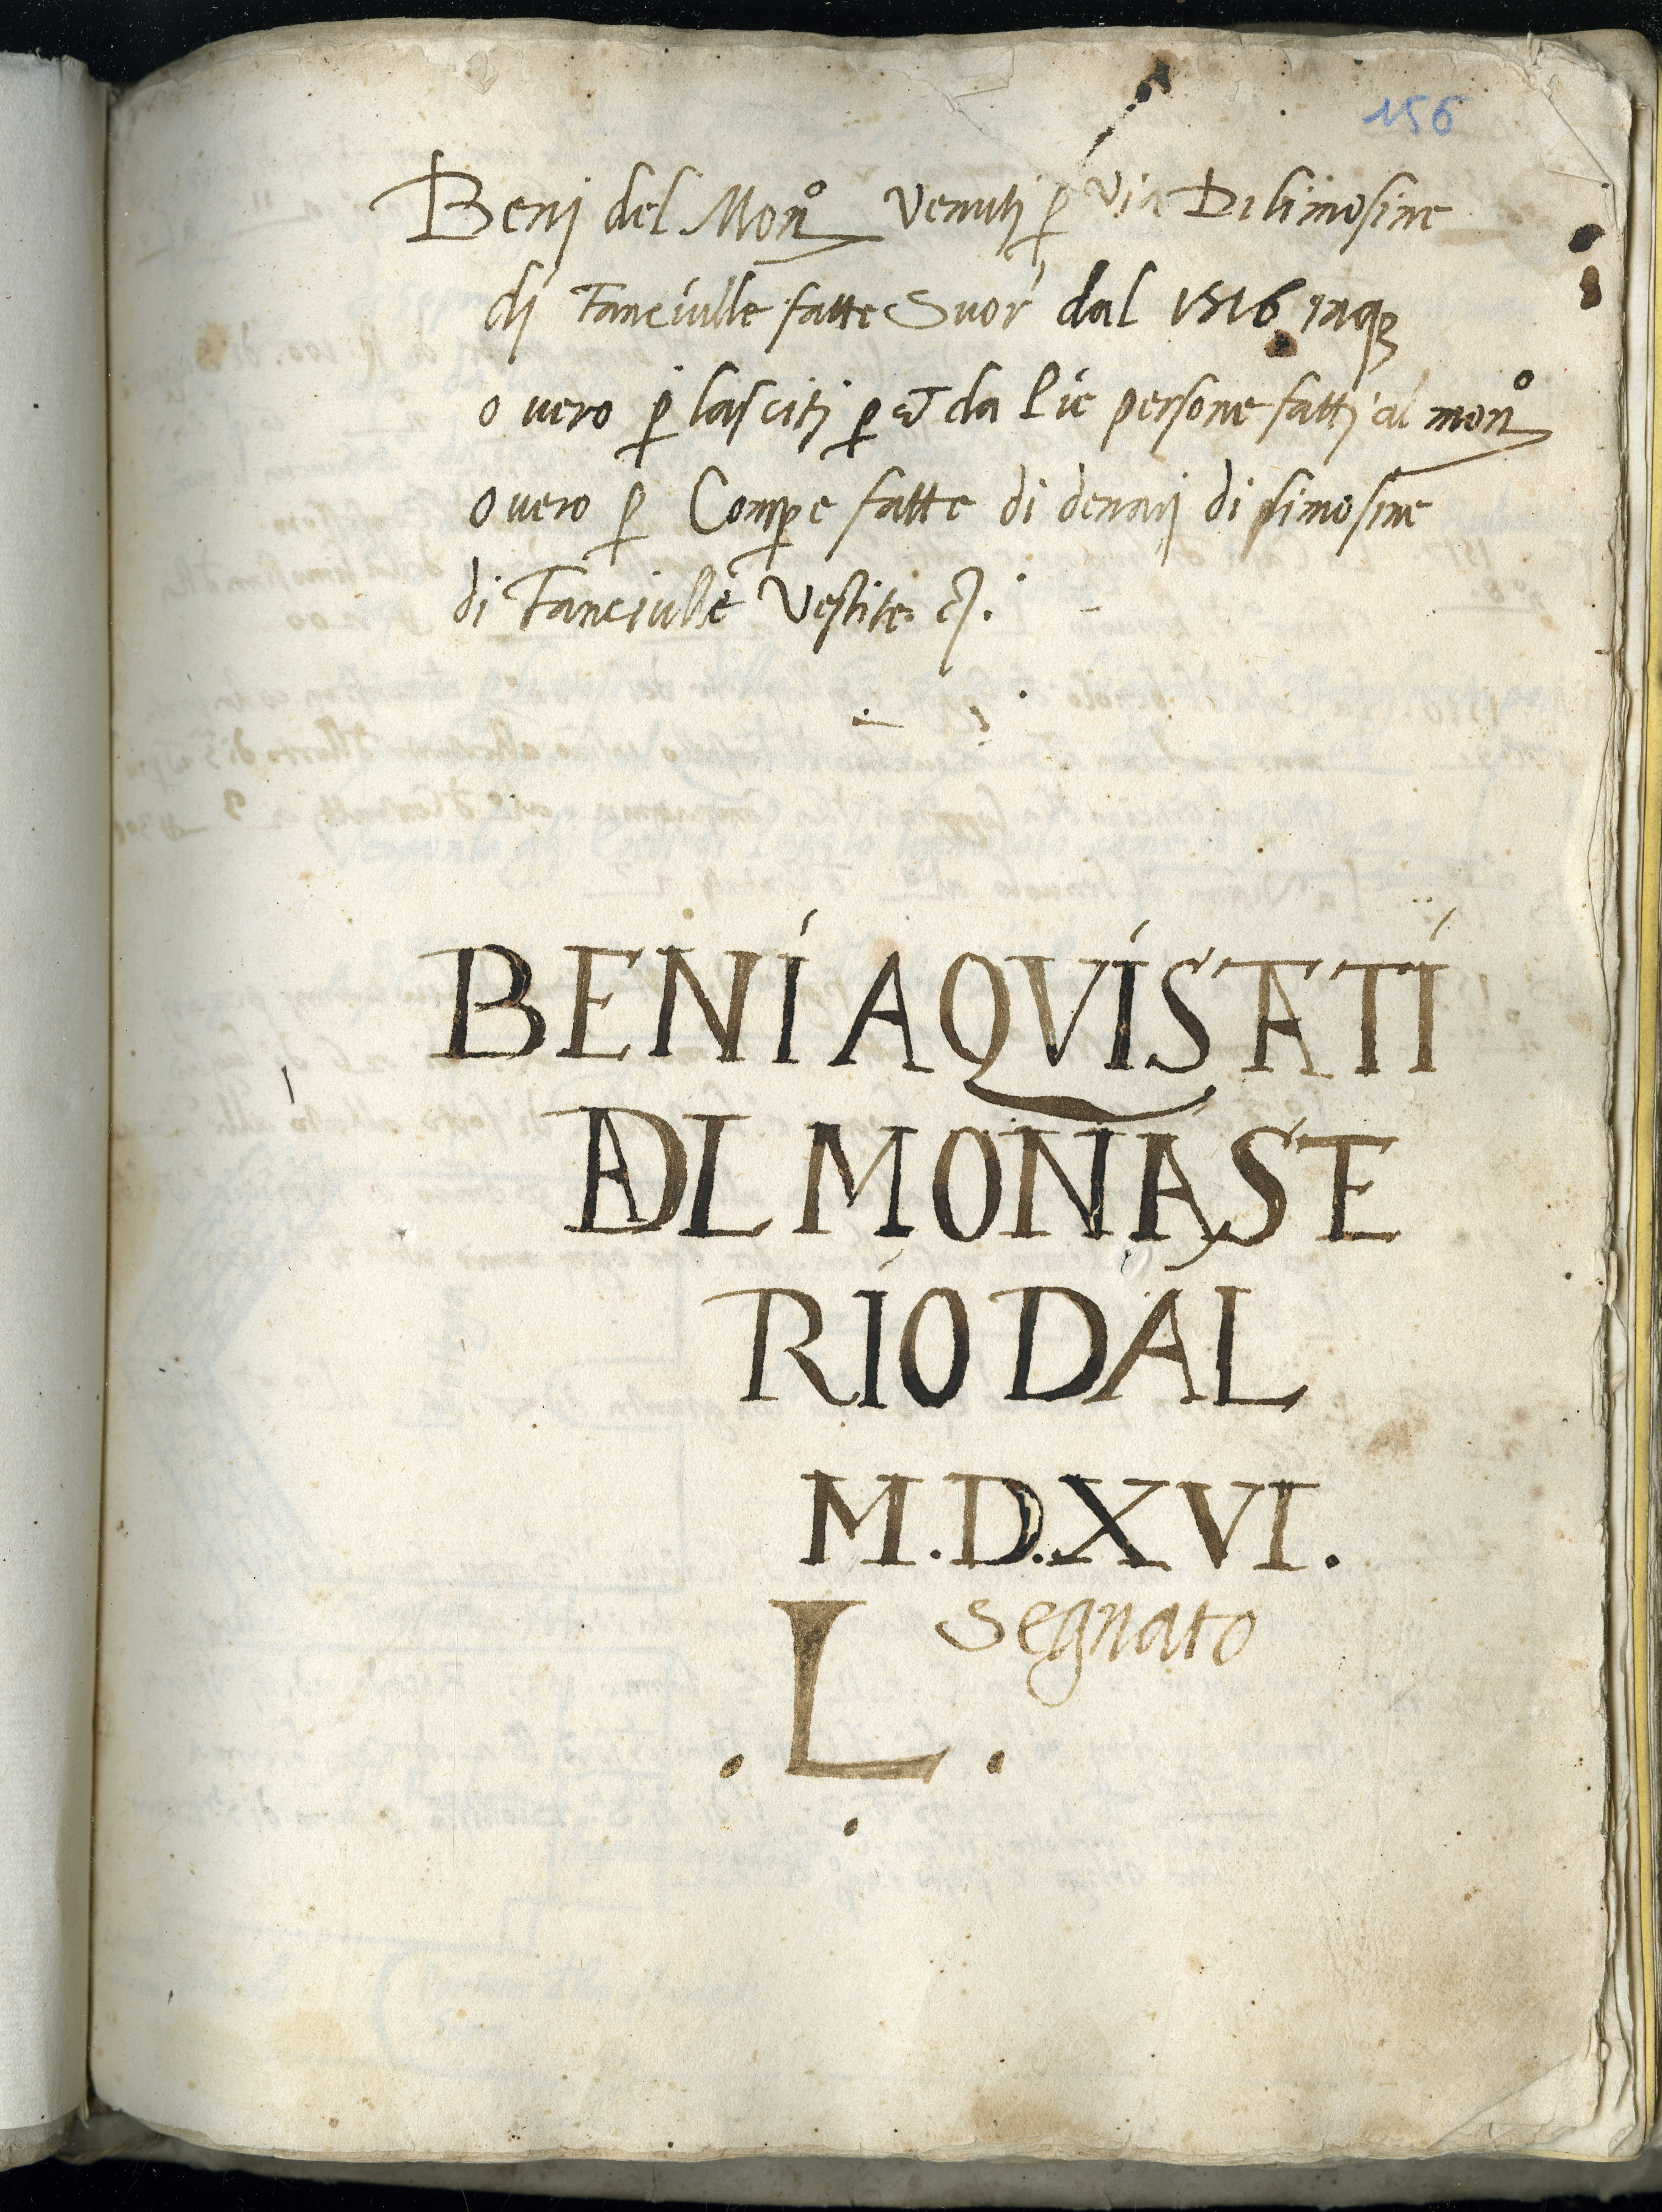 156
Benj del Monº venuti p via Di limosine
dj Fanciulle fatte Suor dal 1516 inqᷓ
o vero p lascitj p da Pie persone fattj al monº
overo p Compe fatte di denarj di limosine
di Fanciulle Vestite.
BENI AQVISTATI
AL MONASTE
RIO DAL
M.D.XVI.
segnato
. L .